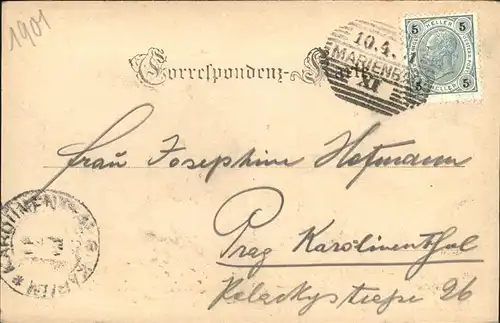 1901
Correspondenz-Karte
10.4.
MARIENB
XI
5 HELLER 5
5 HELLER 5
Frau Josephine Hofmann
Prag Karolinenthal
Palackystraße 26
KAROLINENTH
KARLÍN